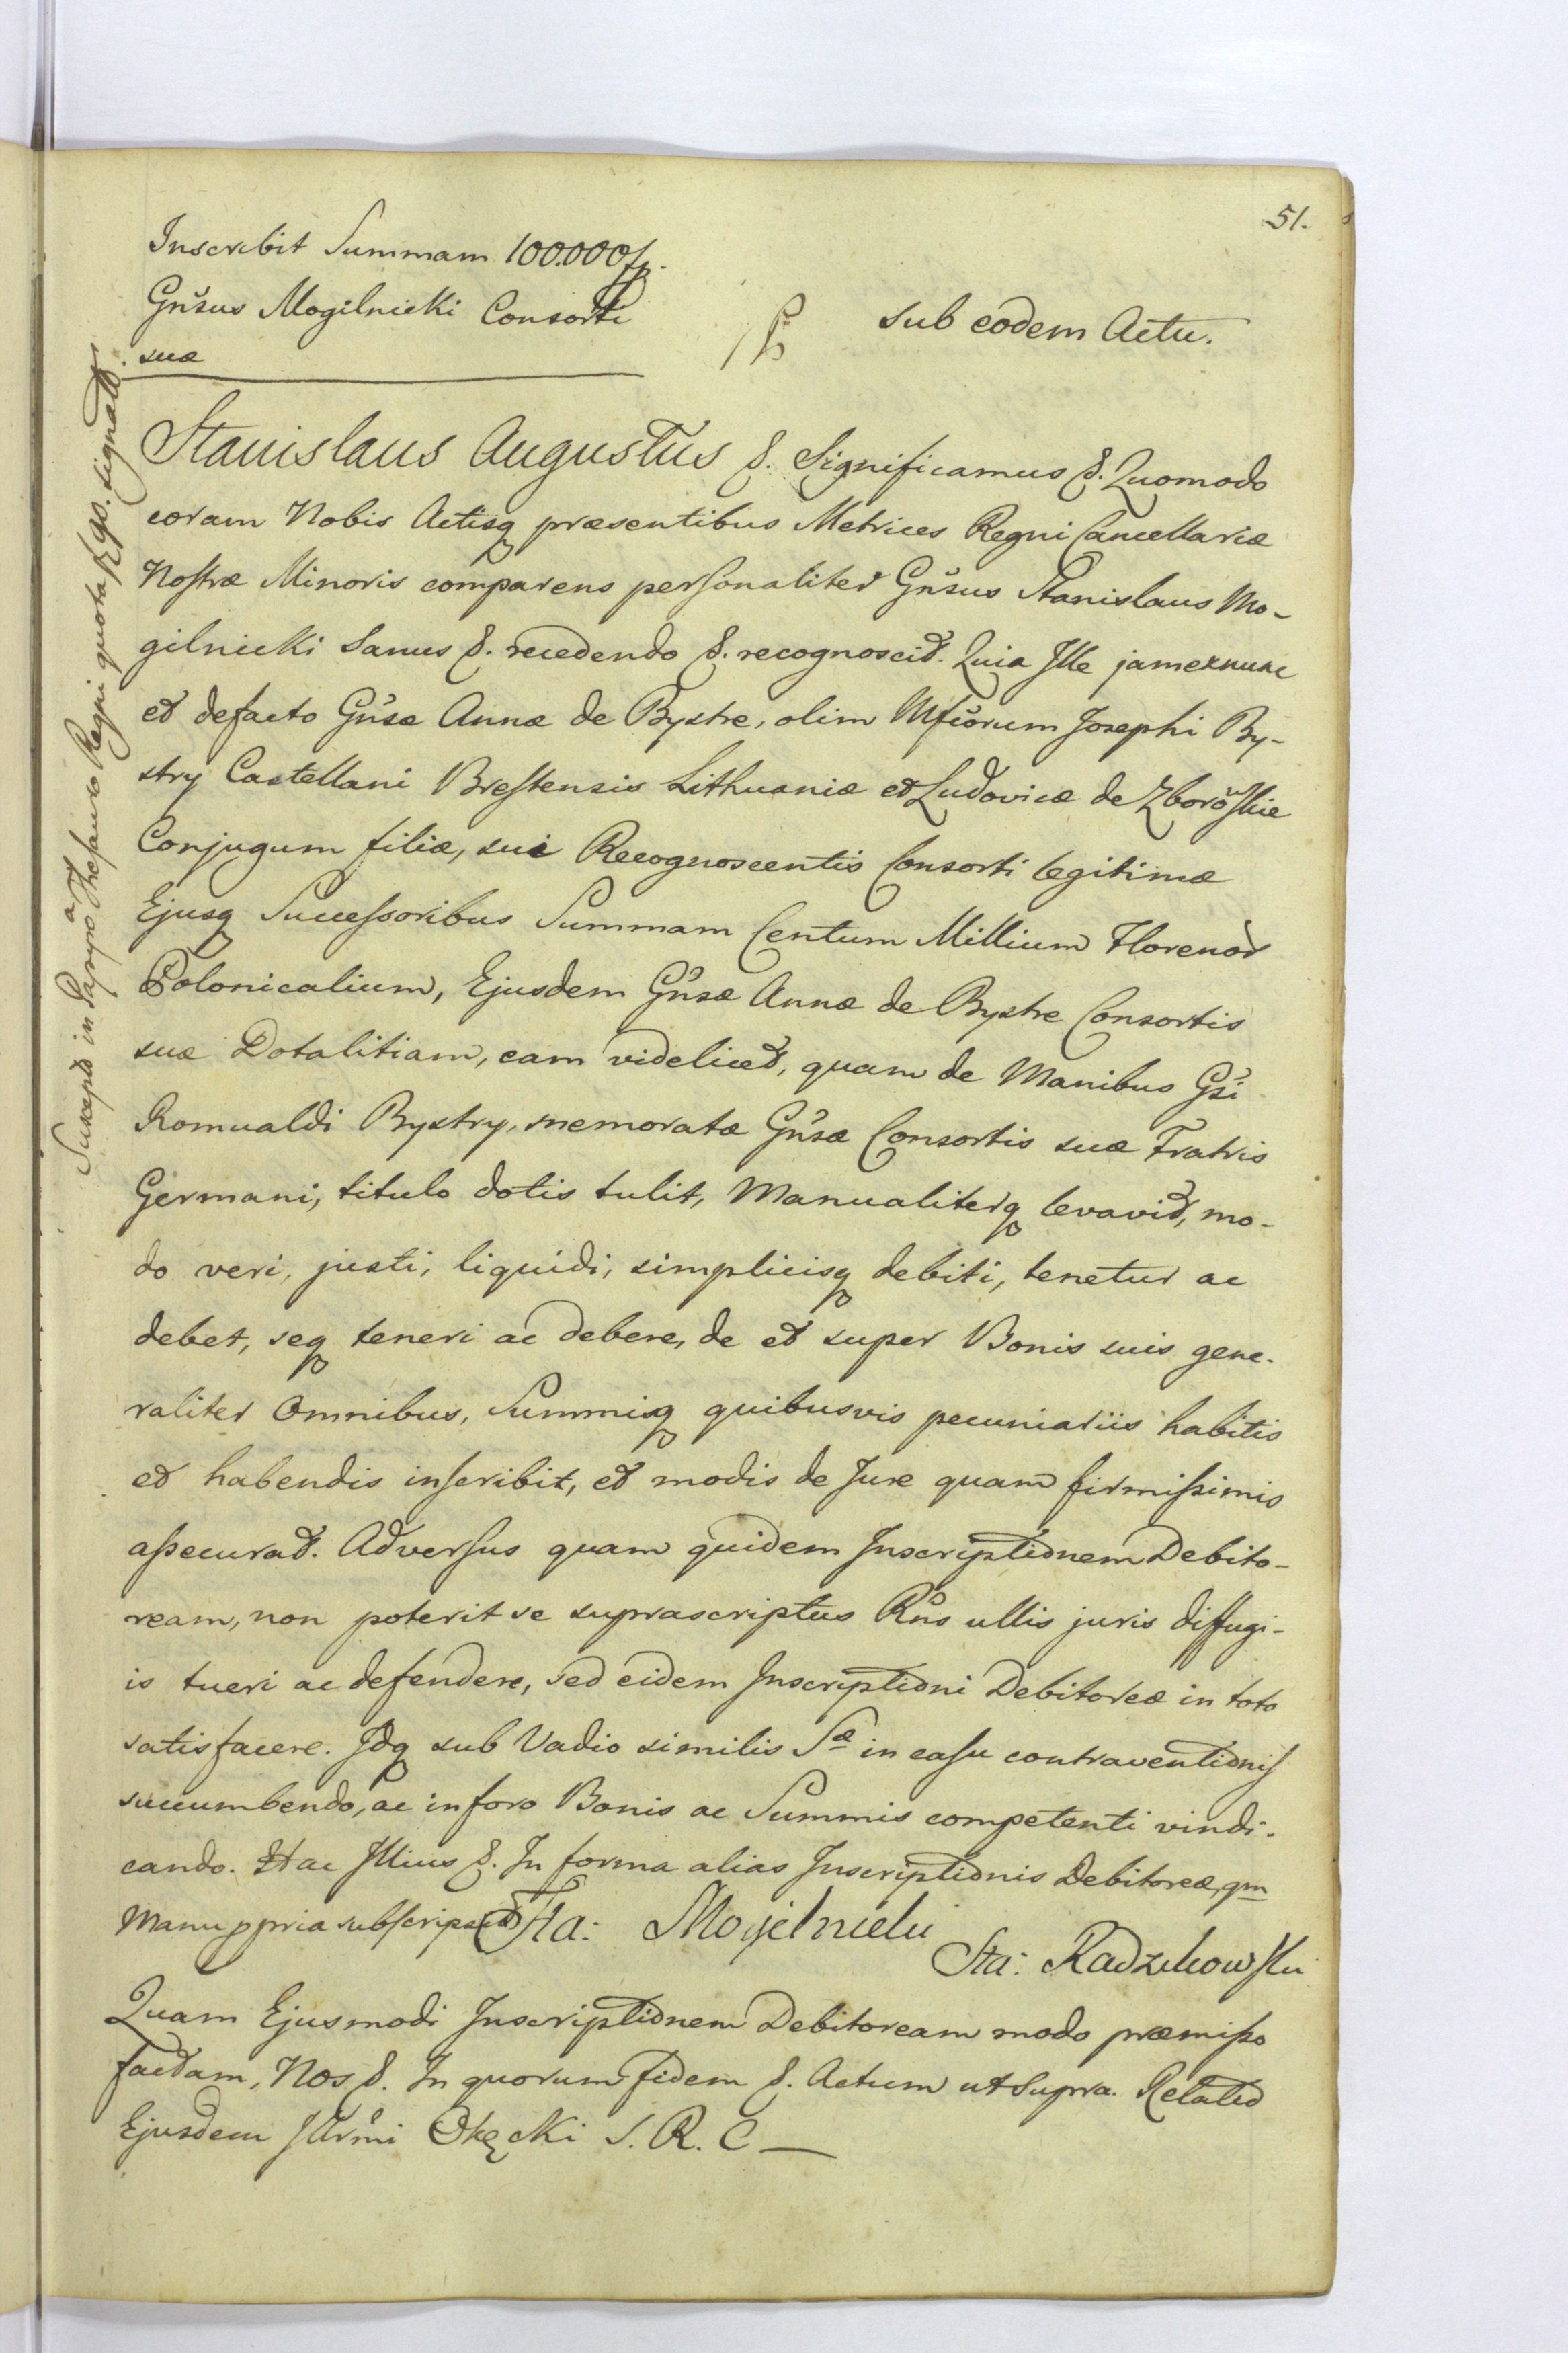 51.
Inscribit Summam 100.000 fp.
Gnŝus Mogilnicki Consorti
suæ
sub eodem Actu.
Stanislaus Augustus &. Significamus &. Quomodo
coram Nobis Actisq præsentibus Metrices Regni Cancellariæ
Nostræ Minoris comparens personaliter Gnŝus Stanislaus Mo-
gilnicki Sanus &. recedendo &. recognoscit. Quia Ille jamexnunc
et defacto Gnŝæ Annæ de Bystre, olim Mfĉorum Josephi By-
stry Castellani Brestensis Lithuaniæ et Ludovicæ de Zborŏskie
Conjugum filiæ, sui Recognoscentis Consorti legitimæ
Ejusq Successoribus Summam Centum Millium Florenor
Polonicalium, Ejusdem Gnŝæ Annæ de Bystre Consortis
suæ Dotalitiam, eam videlicet, quam de Manibus Gŝi
Romualdi Bystry, memoratæ Gnŝæ Consortis suæ Fratris
Germani, titulo dotis tulit, Manualiterq levavit, mo-
do veri, justi, liquidi, simplicisq debiti, tenetur ac
debet, seq teneri ac debere, de et super Bonis suis gene-
raliter Omnibus, Summisq quibusvis pecuniariis habitis
et habendis inscribit, et modis de Jure quam firmissimis
assecurat. Adversus quam quidem Inscriptionem Debito-
ream, non poterit se suprascriptus Rn̂s ullis juris diffugi-
is tueri ac defendere, sed eidem Inscriptioni Debitoreæ in toto
satisfacere. Idq sub Vadio similis Sæ in casu contraventionis
succumbendo, ac in foro Bonis ac Summis competenti vindi-
cando. Hac Illius &. In forma alias Inscriptionis Debitoreæ, qm
Manu ppria subscripsit Sta: Mogilnicki
Sta: Radzikowski
Quam Ejusmodi Inscriptionem Debitoream modo præmisso
factam, Nos &. In quorum fidem &. Actum ut Supra. Relatio
Ejusdem Illrmi Okęcki S. R. C
Suscepta in Papyro a Thesauro Regni quota fl. gs. signato.